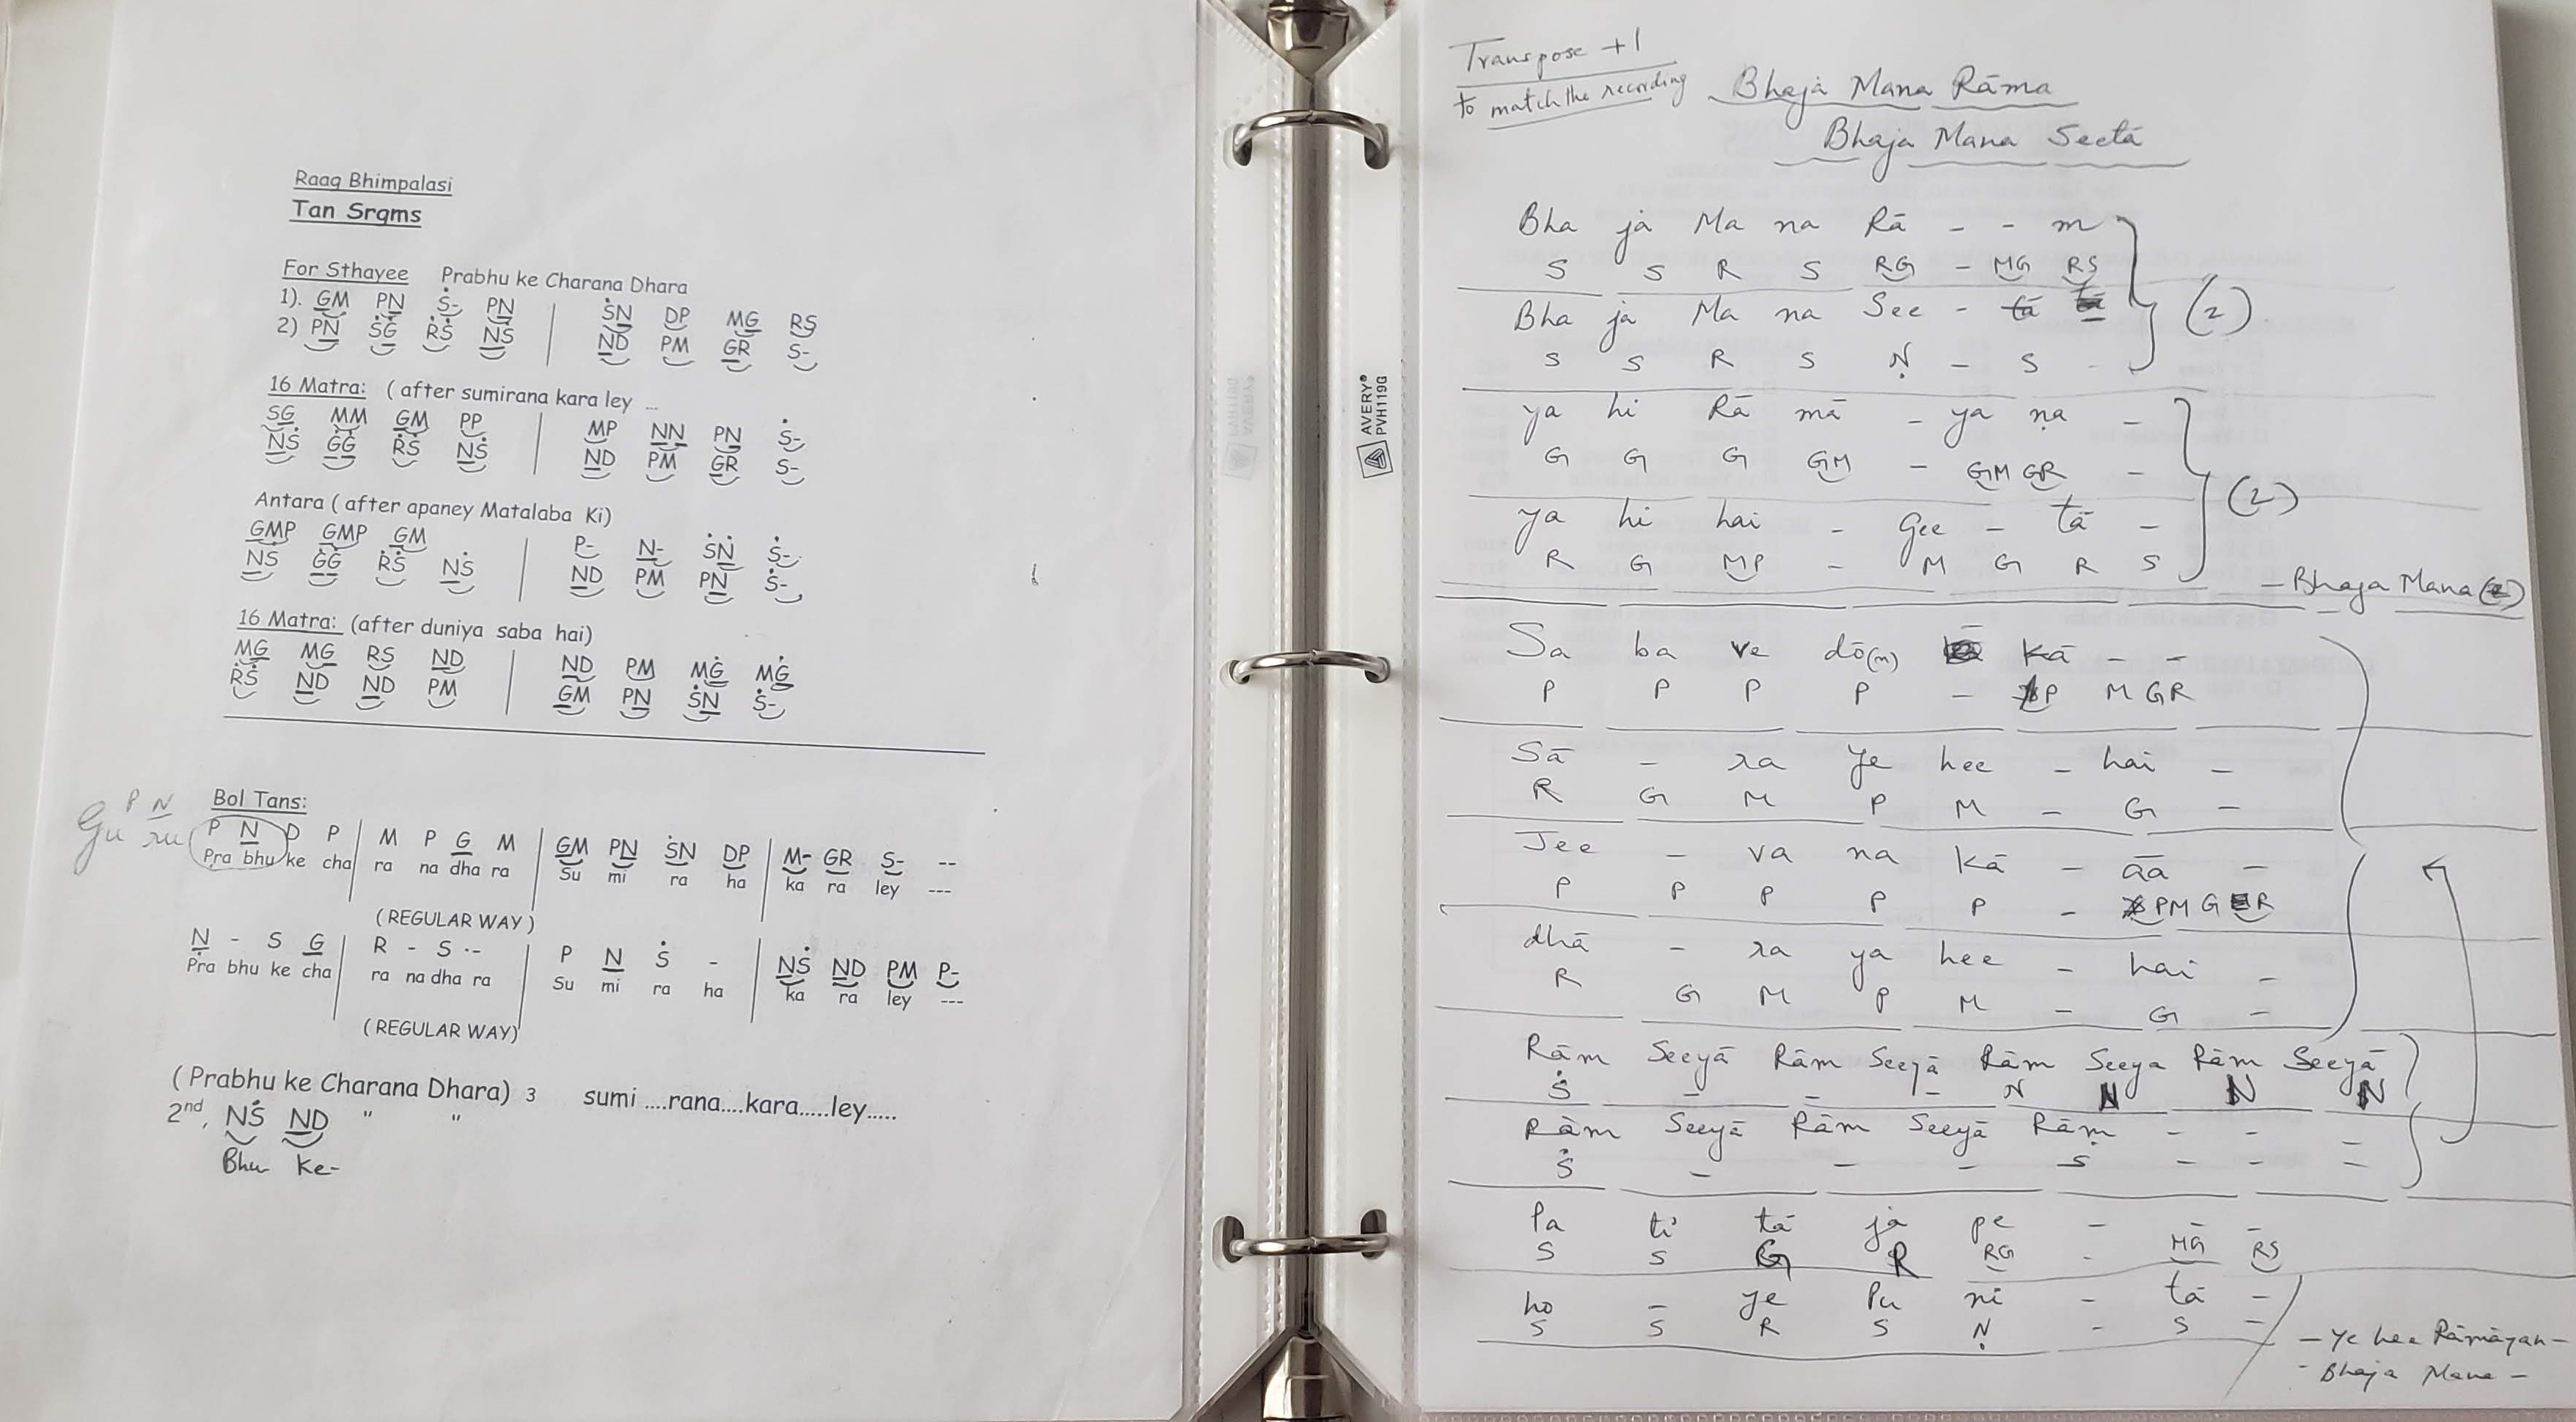 Raag Bhimpalasi
Tan Srgms
For Sthayee Prabhu ke Charana Dhara
1). GM PN Ṡ- PN | ṠN DP MG RS
2) PN ṠG RṠ NṠ | ND PM GR S-
16 Matra: ( after sumirana kara ley ...
SG MM GM PP | MP NN PN Ṡ-
NṠ ĠĠ ṘṠ NṠ | ND PM GR S-
Antara ( after apaney Matalaba Ki)
GMP GMP GM | P- N- ṠṄ Ṡ-
NṠ ĠĠ ṘṠ NṠ | ND PM PN Ṡ-
16 Matra: (after duniya saba hai)
MG MG RS ND | ND PM MĠ MĠ
ṘṠ ND ND PM | GM PN ṠN Ṡ-
Bol Tans:
P N
Gu ru
P N D P | M P G M | GM PN ṠN DP | M- GR S- --
Pra bhu ke cha ra na dha ra Su mi ra ha ka ra ley ---
(REGULAR WAY )
Ṇ - S G | R - S -- | P N Ṡ - | NṠ ND PM P-
Pra bhu ke cha ra na dha ra Su mi ra ha ka ra ley ---
(REGULAR WAY)
( Prabhu ke Charana Dhara) 3 sumi ....rana....kara.....ley.....
2nd, NṠ ND " "
Bhu Ke-
AVERY®
PVH119G
Transpose +1
to match the recording
Bhaja Mana Rāma
Bhaja Mana Seetā
Bha ja Ma na Rā - - m
S S R S RG - MG RS
Bha ja Ma na See - tā
S S R S Ṇ - S -
(2)
ya hi Rā mā - ya na -
G G G GM - GM GR -
ya hi hai - Gee - tā -
R G MP - M G R S
(2)
- Bhaja Mana (2)
Sa ba ve dō(n) Kā - -
P P P P - P M GR
Sā - ra ye hee - hai -
R G M P M - G -
Jee - va na Kā - āā -
P P P P P - PM G R
dhā - ra ya hee - hai -
R G M P M - G -
Rām Seeyā Rām Seeyā Rām Seeya Rām Seeyā
Ṡ - - - N N N N
Rām Seeyā Rām Seeyā Rām - - -
Ṡ - - - S - - -
Pa ti tā ja pe - - -
S S G R RG - MG RS
ho - ye Pu ni - tā -
S S R S Ṇ - S -
- Ye hee Rāmāyan -
- Bhaja Mana -